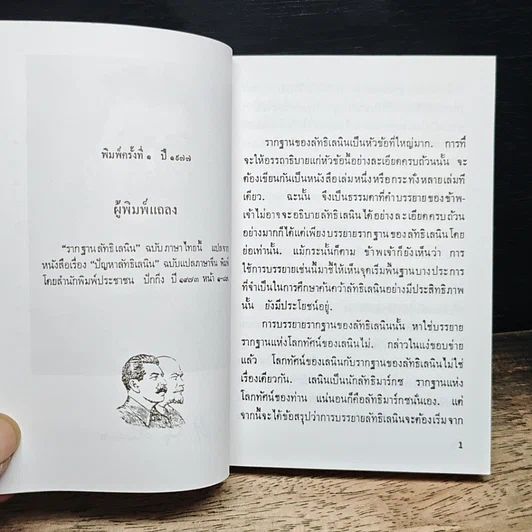 พิมพ์ครั้งที่ ๑ ปี ๑๙๗๗
ผู้พิมพ์แถลง
"รากฐานลัทธิเลนิน" ฉบับภาษาไทยนี้ แปลจาก
หนังสือเรื่อง "ปัญหาลัทธิเลนิน" ฉบับแปลภาษาจีน พิมพ์
โดยสำนักพิมพ์ประชาชน ปักกิ่ง ปี ๑๙๗๓ หน้า
รากฐานของลัทธิเลนินเป็นหัวข้อที่ใหญ่มาก. การที่
จะให้อรรถาธิบายแก่หัวข้อนี้อย่างละเอียดครบถ้วนนั้น จะ
ต้องเขียนกันเป็นหนังสือเล่มหนึ่งหรือกระทั่งหลายเล่มที
เดียว. ฉะนั้น จึงเป็นธรรมดาที่คำบรรยายของข้าพ-
เจ้าไม่อาจจะอธิบายลัทธิเลนินได้อย่างละเอียดครบถ้วน
อย่างมากก็ได้แต่เพียงบรรยายรากฐานของลัทธิเลนินโดย
ย่อเท่านั้น. แม้กระนั้นก็ตาม ข้าพเจ้าก็ยังเห็นว่า การ
ใช้การบรรยายเช่นนี้มาชี้ให้เห็นจุดเริ่มพื้นฐานบางประการ
ที่จำเป็นในการศึกษาค้นคว้าลัทธิเลนินอย่างมีประสิทธิภาพ
นั้น ยังมีประโยชน์อยู่.
การบรรยายรากฐานของลัทธิเลนินนั้น หาใช่บรรยาย
รากฐานแห่งโลกทัศน์ของเลนินไม่. กล่าวในแง่ขอบข่าย
แล้ว โลกทัศน์ของเลนินกับรากฐานของลัทธิเลนินไม่ใช่
เรื่องเดียวกัน. เลนินเป็นนักลัทธิมาร์กซ รากฐานแห่ง
โลกทัศน์ของท่าน แน่นอนก็คือลัทธิมาร์กซนั่นเอง. แต่
จากนี้จะได้ข้อสรุปว่าการบรรยายลัทธิเลนินจะต้องเริ่มจาก
1